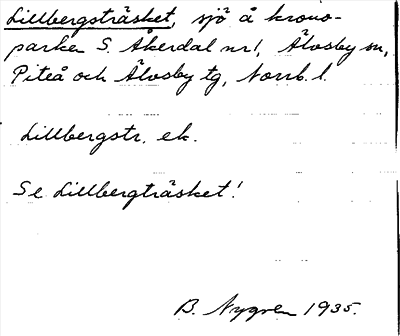 Lillbergsträsket, sjö å krono-
parken S. Åkerdal nr 1, Älvsby sn,
Piteå och Älvsby tg, Norrb. l.
Lillbergstr. ek.
Se Lillbergträsket!
B. Nygren 1935.